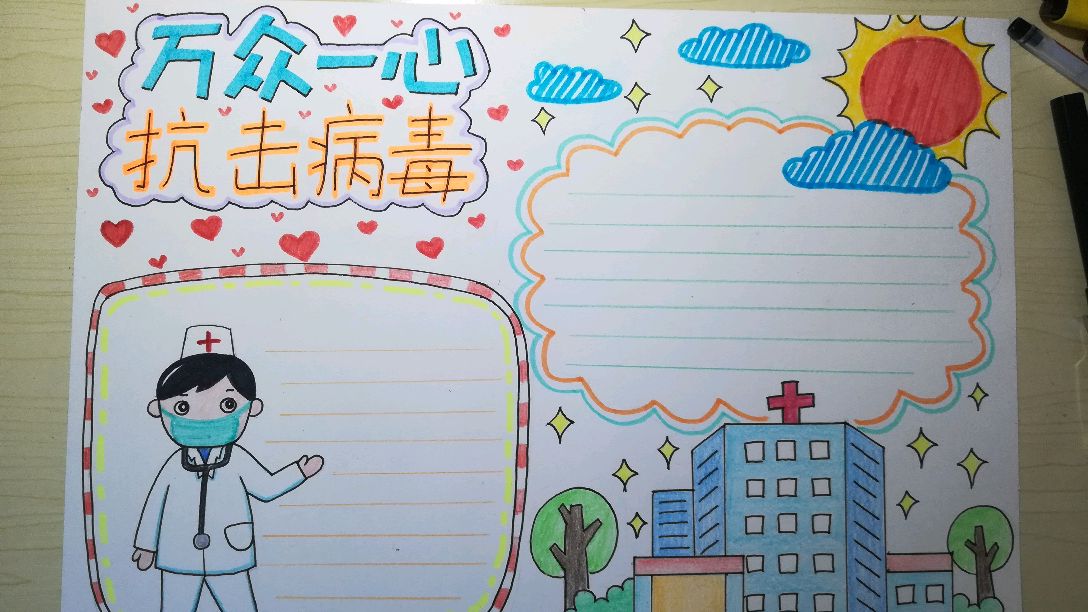 万众一心
抗击病毒